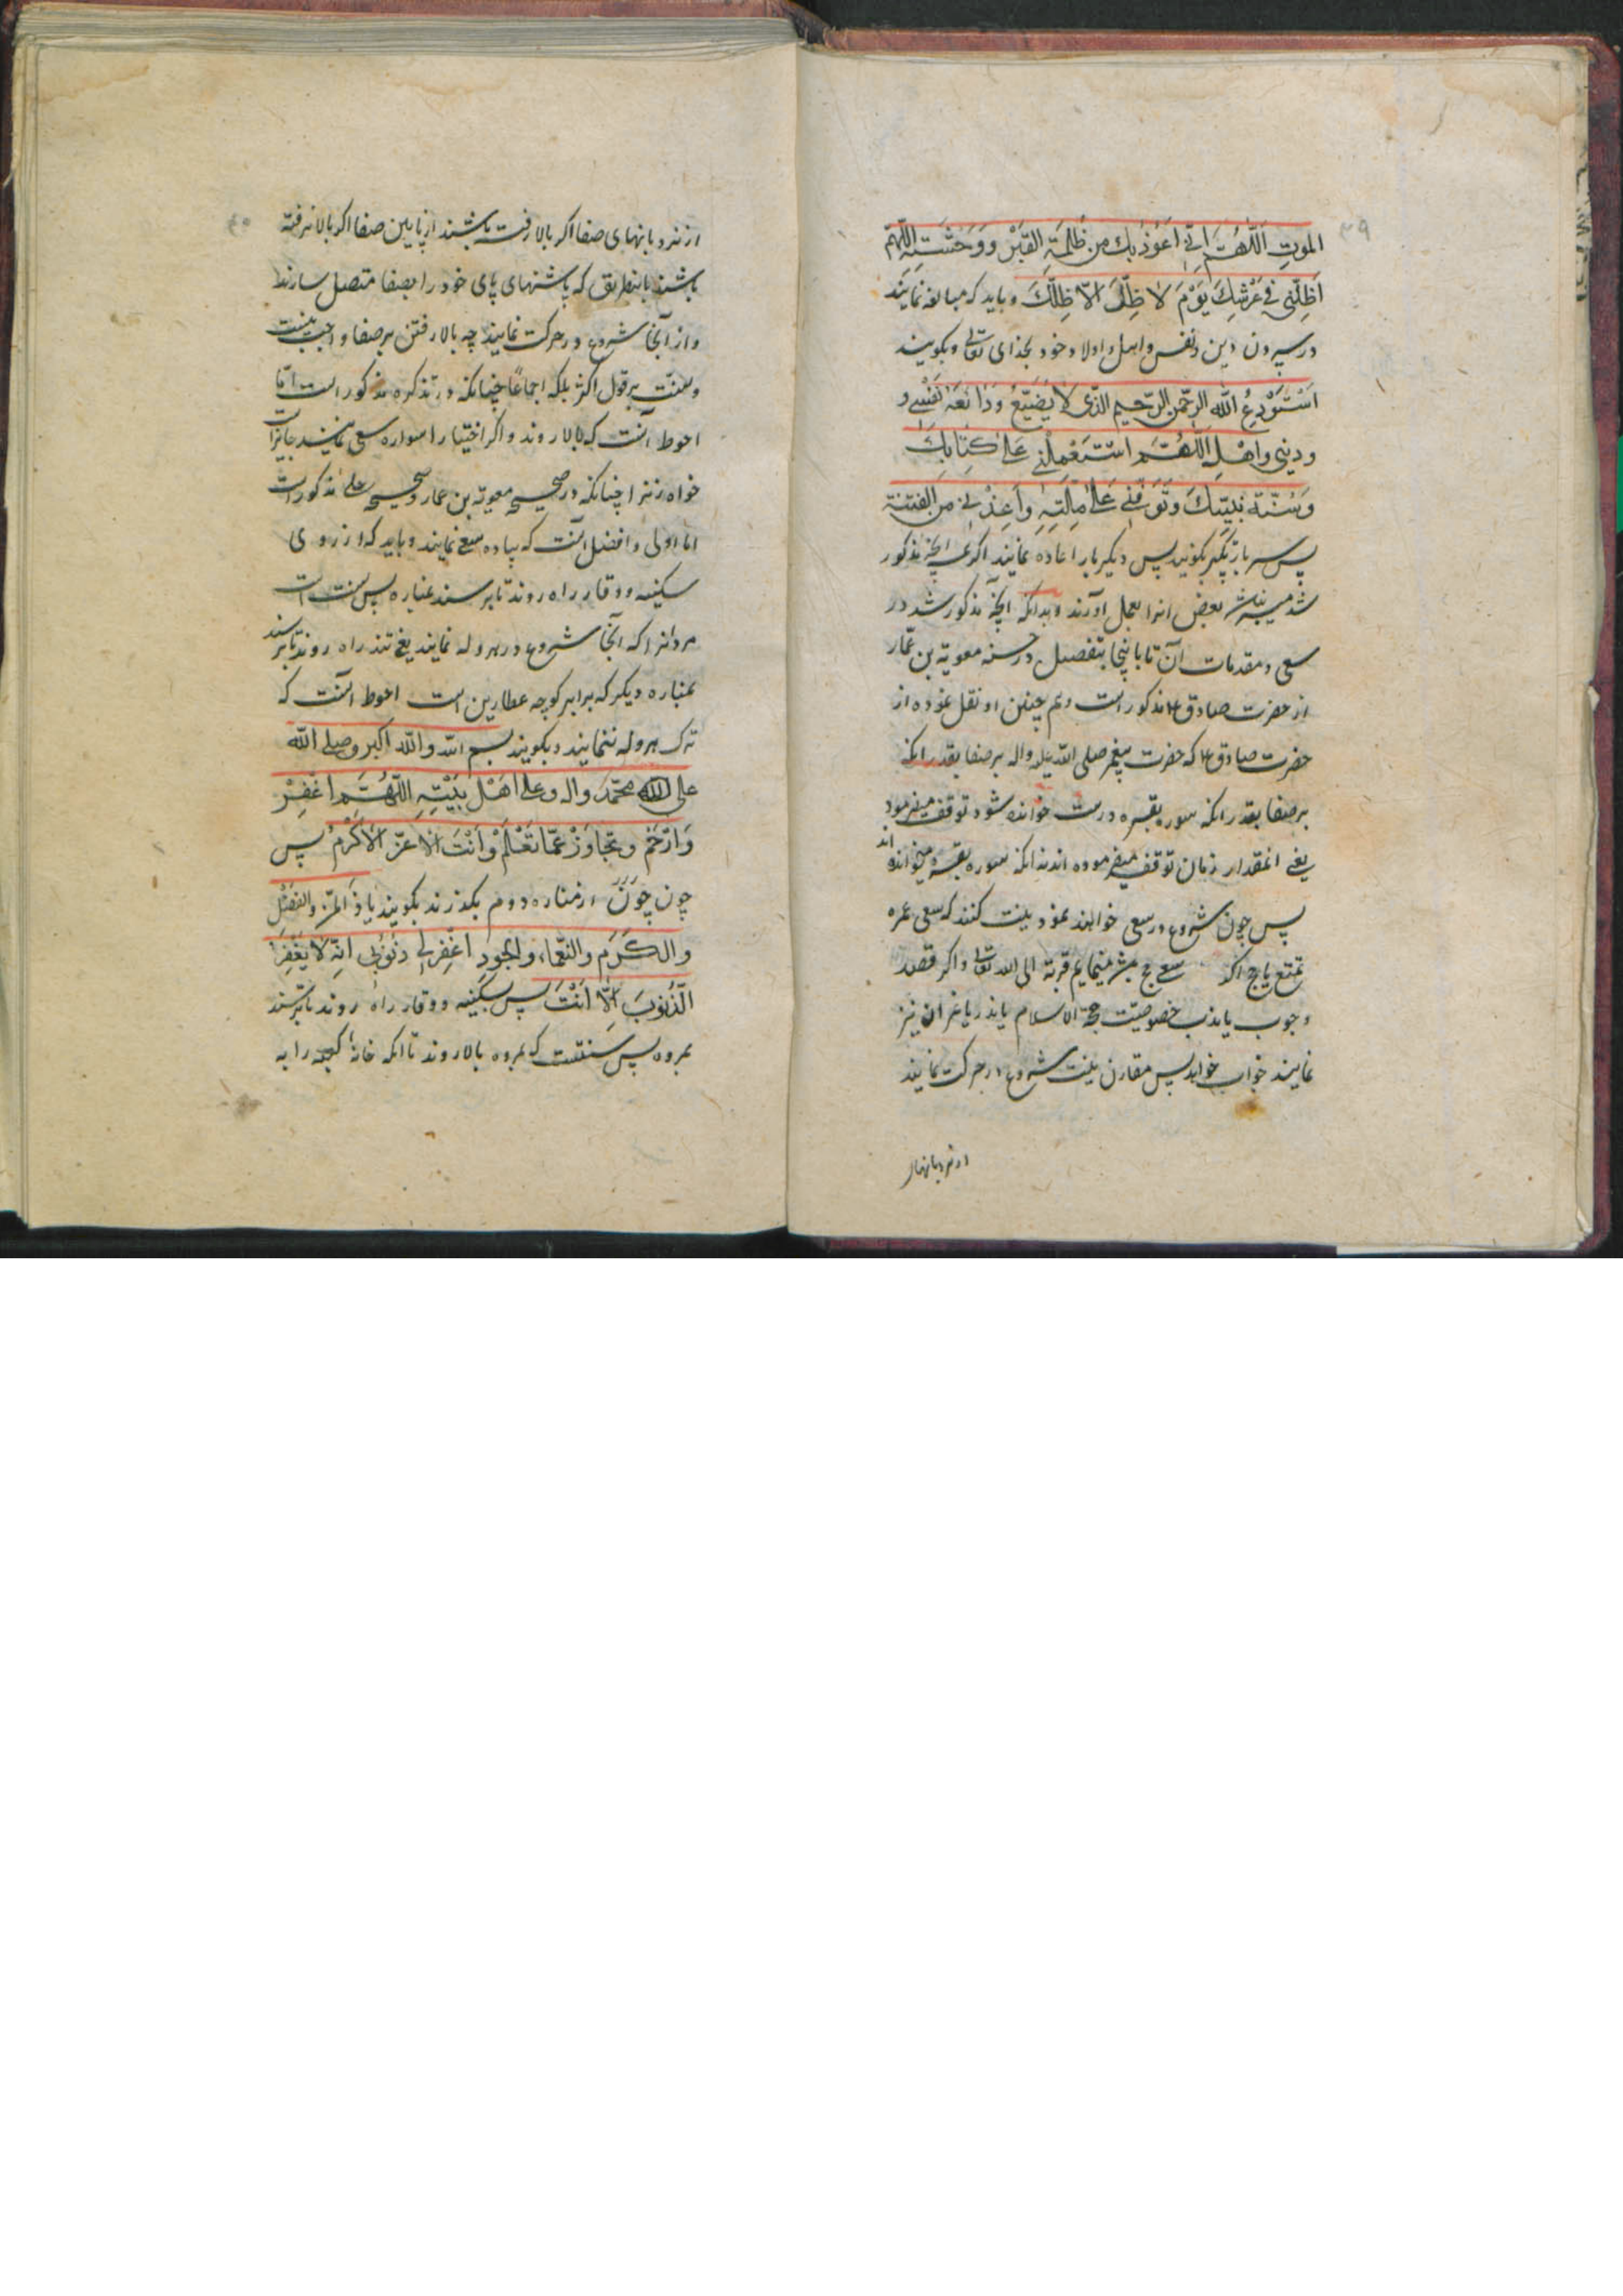 ۳۹
الموتِ اَللّٰهُمَّ اِنّی اَعُوذُ بِكَ من ظُلْمَةِ القَبْرِ وَوَحْشَتِهِ اللّهم
اَظِلَّنی فی عَرْشِكَ یَوْمَ لا ظِلَّ الّا ظِلُّكَ و باید که مبالغه نمایند
در سپردن دین و نفس و اهل و اولاد خود بخدای تعالی و بکویند
اَسْتَوْدِعُ اللّه الرحمن الرحیم الّذی لا یُضَیِّعُ وَدائِعَهُ نَفْسی و
و دینی و اهلی اللّهُمَّ اسْتَعْمِلْنی عَلی کِتابِكَ
وَسُنَّة نبیّكَ وَتَوَفَّنی عَلی مِلَّتِهِ وَاَعِذْنی من الفتنة
پس سه بار تکبیر بکویند پس دیکر بار اعاده نمایند اکر همه انچه مذکور
شد میسر نباشد بعض انرا بعمل اورند و بدانکه انچه مذکور شد در
سعی و مقدمات آن تا باینجا بتفصیل در حسنه معویة بن عمّار
از حضرت صادق ع مذکور است و هم چنین او نقل نموده از
حضرت صادق ع که حضرت پیغمبر صلی الله علیه واله بر صفا بقدر انکه
بر صفا بقدر انکه سوره بقره درست خوانده شود توقف میفرمود
یعنی انمقدار زمان توقف میفرموده اند نه انکه سوره بقره میخوانده اند
پس چون شروع در سعی خواهند نمود نیت کنند که سعی عمره
تمتع یا حج اکر سعی حج باشد مینمایم قربة الی الله تعالی و اکر قصد
وجوب یا ندب خصوصیت حجة الاسلام یا نذر یا غیر ان نیز
نمایند خوب خواهد پس مقارن نیت شروع در حرکت نمایند
از نردبانهای
۴۰
از نردبانهای صفا اکر بالا رفته باشند از پایین صفا اکر بالا نرفته
باشند باینطریق که پاشنهای پای خود را بصفا متصل سازند
و از آنجا شروع در حرکت نمایند چه بالا رفتن بر صفا واجب نیست
و سنّت بر قول اکثر بلکه اجماعًا چنانکه در تذکره مذکور است امّا
احوط آنست که بالا روند و اکر اختیارا سواره سعی نمایند جایز است
خواه زنرا چنانکه در صحیحه معویة بن عمار و صحیحه حلبی مذکور است
اما اولی و افضل آنست که پیاده سعی نمایند و باید که از روی
سکینه و وقار راه روند تا برسند بمناره پس سنت است
مردانرا که آنجا شروع در هروله نمایند یعنی تند راه روند تا برسند
بمناره دیکر که برابر کوچه عطارین است احوط آنست که
ترک هروله ننمایند و بکویند بسم الله والله اکبر وصلی الله
علی محمّد واله وعلی اَهْل بَیْتِهِ اللّهُمَّ اغْفِرْ
وَارْحَمْ وتجاوَزْ عمّا تَعْلَمُ وَاَنْتَ الاَعزّ الاَکْرَمُ پس
چون چون از مناره دوم بکذرند بکویند یا ذَاالْمَنِّ والفَضْلِ
والکَرَمِ والنَّعْماء والجودِ اغْفِرْلی ذُنُوبی اِنَّه لا یَغْفِرُ
الذُّنوبَ اِلّا اَنْتَ پس بسکینه و وقار راه روند تا برسند
بمروه پس سنتست که بمروه بالا روند تا انکه خانه کعبه را به